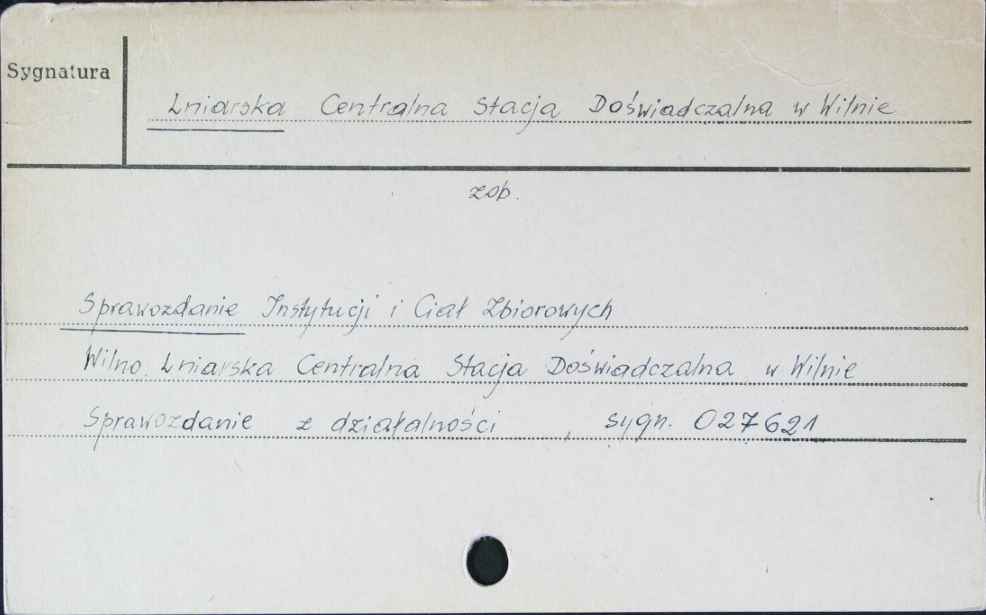 Sygnatura
Lniarska Centralna Stacja Doświadczalna w Wilnie
zob.
Sprawozdanie Instytucji i Ciał Zbiorowych
Wilno. Lniarska Centralna Stacja Doświadczalna w Wilnie
Sprawozdanie z działalności , sygn. 027621